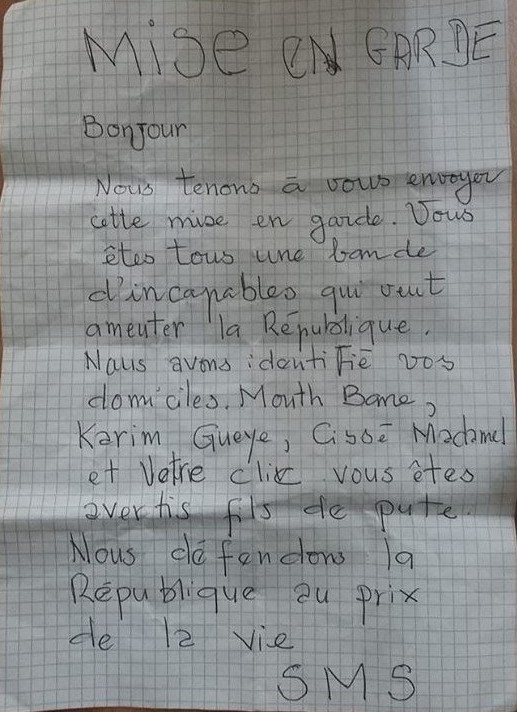 Mise en GARDE
Bonjour
Nous tenons à vous envoyer
cette mise en garde. Vous
êtes tous une bande
d'incapables qui veut
ameuter la République.
Nous avons identifié vos
domiciles. Mouth Bane,
Karim Gueye, Cissé Madamel
et Votre clic vous êtes
avertis fils de pute.
Nous défendons la
République au prix
de la vie
SMS